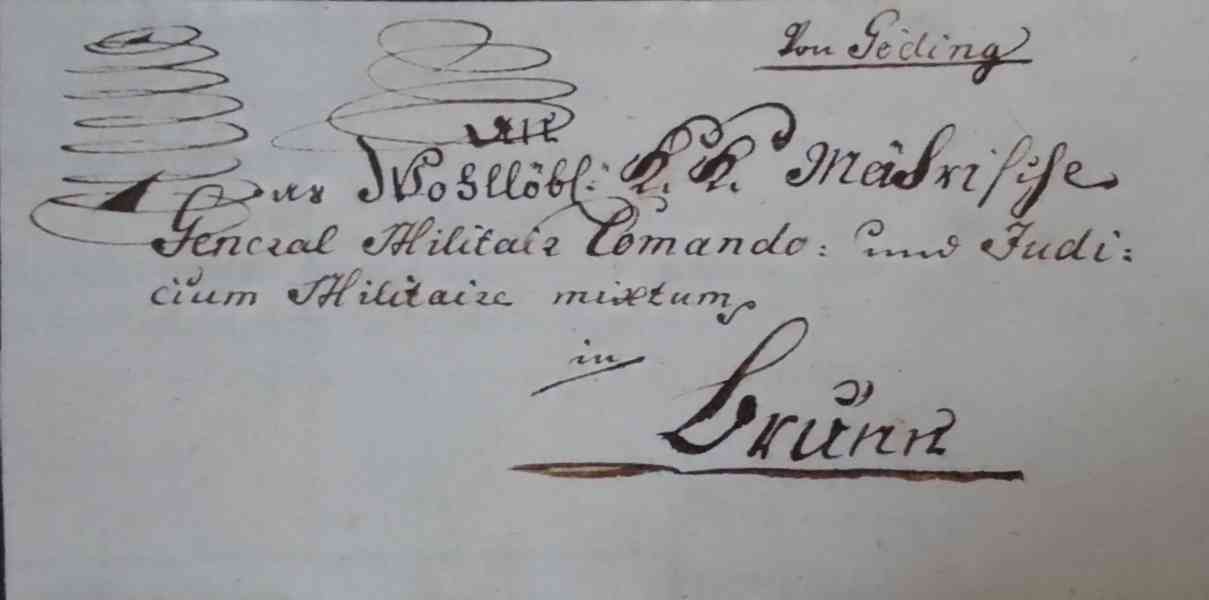 Von Göding
An
Das Wohllöbl: K. K. Mährische
General Militair Comando: und Judi:
cium Militaire mixtum
in
Brünn